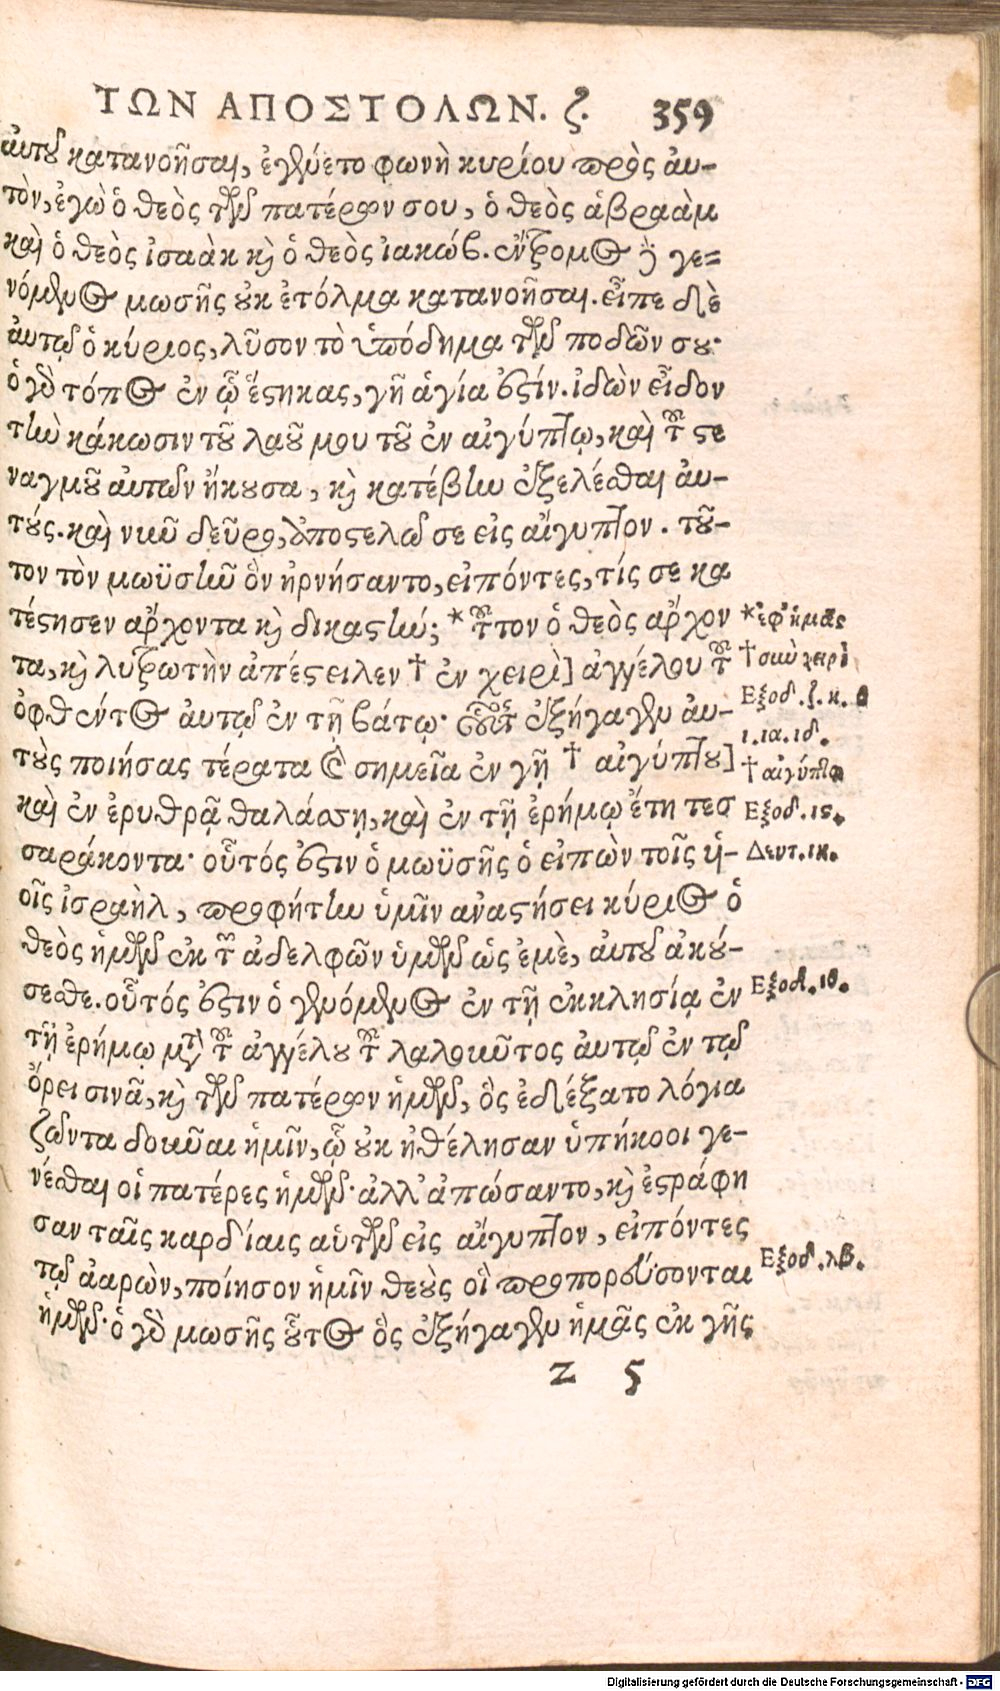 ΤΩΝ ΑΠΟΣΤΟΛΩΝ. ζ. 359
αὐτοῦ κατανοῆσαι, ἐγένετο φωνὴ κυρίου πρὸς ἀυ-
τὸν, ἐγὼ ὁ θεὸς τῶν πατέρων σου, ὁ θεὸς ἀβραὰμ
καὶ ὁ θεὸς ἰσαὰκ καὶ ὁ θεὸς ἰακώβ. ἔντρομος δὲ γε=
νόμενος μωσῆς οὐκ ἐτόλμα κατανοῆσαι. εἶπε δὲ
ἀυτῷ ὁ κύριος, λῦσον τὸ ὑπόδημα τῶν ποδῶν σου·
ὁ γὰρ τόπος ἐν ᾧ ἕστηκας, γῆ ἁγία ἐστίν. ἰδὼν εἶδον
τὴν κάκωσιν τοῦ λαοῦ μου τοῦ ἐν αἰγύπτῳ, καὶ τοῦ στε
ναγμοῦ ἀυτῶν ἤκουσα, καὶ κατέβην ἐξελέσθαι ἀυ-
τούς. καὶ νῦν δεῦρο, ἀποστελῶ σε εἰς αἴγυπτον. τοῦ-
τον τὸν μωϋσῆν ὃν ἠρνήσαντο, εἰπόντες, τίς σε κα
τέστησεν ἄρχοντα καὶ δικαστήν; * τοῦτον ὁ θεὸς ἄρχον
τα, καὶ λυτρωτὴν ἀπέστειλεν † ἐν χειρὶ] ἀγγέλου τοῦ
ὀφθέντος ἀυτῷ ἐν τῇ βάτῳ· οὗτος ἐξήγαγεν ἀυ-
τοὺς ποιήσας τέρατα καὶ σημεῖα ἐν γῇ † αἰγύπτου]
καὶ ἐν ἐρυθρᾷ θαλάσσῃ, καὶ ἐν τῇ ἐρήμῳ ἔτη τεσ
σαράκοντα· οὗτός ἐστιν ὁ μωϋσῆς ὁ εἰπὼν τοῖς υἱ-
οῖς ἰσραὴλ, προφήτην ὑμῖν ἀναστήσει κύριος ὁ
θεὸς ἡμῶν ἐκ τῶν ἀδελφῶν ὑμῶν ὡς ἐμὲ, ἀυτοῦ ἀκού-
σεσθε. οὗτός ἐστιν ὁ γενόμενος ἐν τῇ ἐκκλησίᾳ ἐν
τῇ ἐρήμῳ μετὰ τοῦ ἀγγέλου τοῦ λαλοῦντος ἀυτῷ ἐν τῷ
ὄρει σινᾶ, καὶ τῶν πατέρων ἡμῶν, ὃς ἐδέξατο λόγια
ζῶντα δοῦναι ἡμῖν, ᾧ οὐκ ἠθέλησαν ὑπήκοοι γε-
νέσθαι οἱ πατέρες ἡμῶν· ἀλλ' ἀπώσαντο, καὶ ἐστράφη
σαν ταῖς καρδίαις αὑτῶν εἰς αἴγυπτον, εἰπόντες
τῷ ἀαρὼν, ποίησον ἡμῖν θεοὺς οἳ προπορεύσονται
ἡμῶν· ὁ γὰρ μωσῆς οὗτος ὃς ἐξήγαγεν ἡμᾶς ἐκ γῆς
*ἐφ' ἡμᾶς
† σὺν χειρὶ
Εξοδ. ζ. κ. θ
ι. ια. ιδ.
† αἰγύπτῳ
Εξοδ. ις.
Δευτ. ιη.
Εξοδ. ιθ.
Εξοδ. λβ.
Z 5
Digitalisierung gefördert durch die Deutsche Forschungsgemeinschaft - DFG